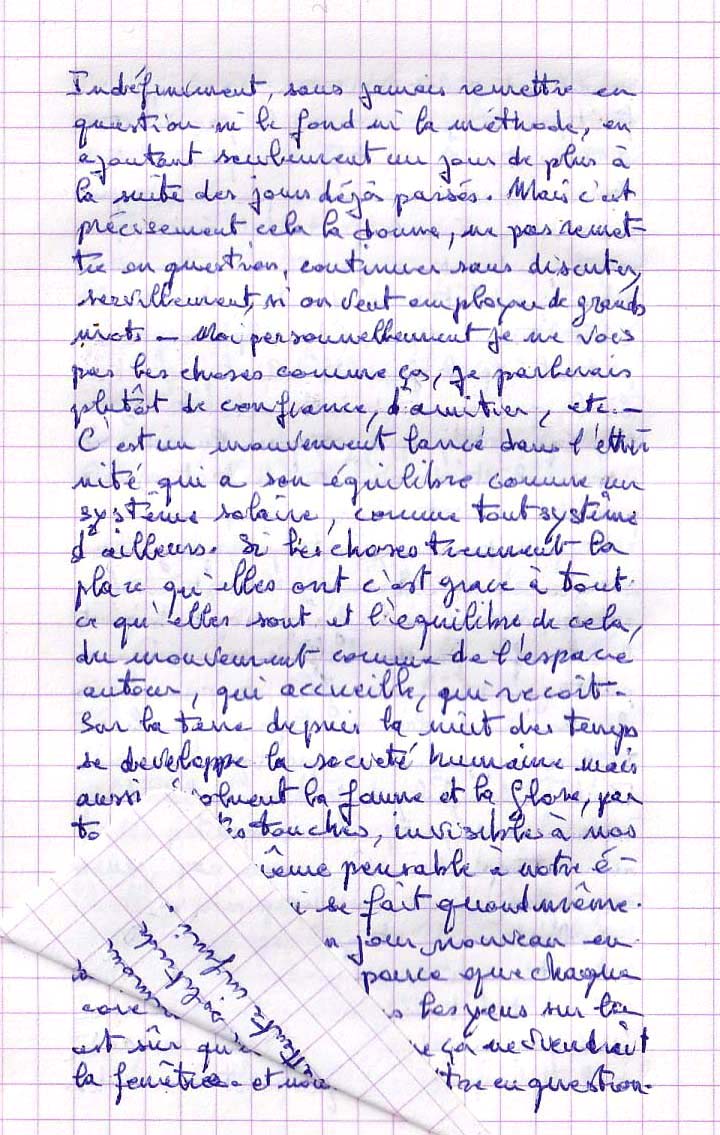 Indéfiniment, sans jamais remettre en
question ni le fond ni la méthode, en
ajoutant seulement un jour de plus à
la suite des jours déjà passés. Mais c'est
précisement cela la donne, ne pas remet-
tre en question, continuer sans discuter,
servillement, si on veut employer de grands
mots - Moi personnellement je ne vois
pas les choses comme ça, je parlerais
plutôt de confiance, d'amitier, etc. -
C'est un mouvement lancé dans l'éther
nité qui a son équilibre comme un
système solaire, comme tout système
d'ailleurs. Si les choses tiennent la
place qu'elles ont c'est grace à tout
ce qu'elles sont et l'équilibre de cela,
du mouvement comme de l'espace
autour, qui accueille, qui recoit.
Sur la terre depuis la nuit des temps
se developpe la societé humaine mais
aussi la faune et la flore, par
touches, invisible à nos
pensable à notre é-
se fait quand même.
jour nouveau en
parce que chaque
les yeux sur la
est sûr ça reviendrait
la fenêtre et en question.
amour
solitude
infini.